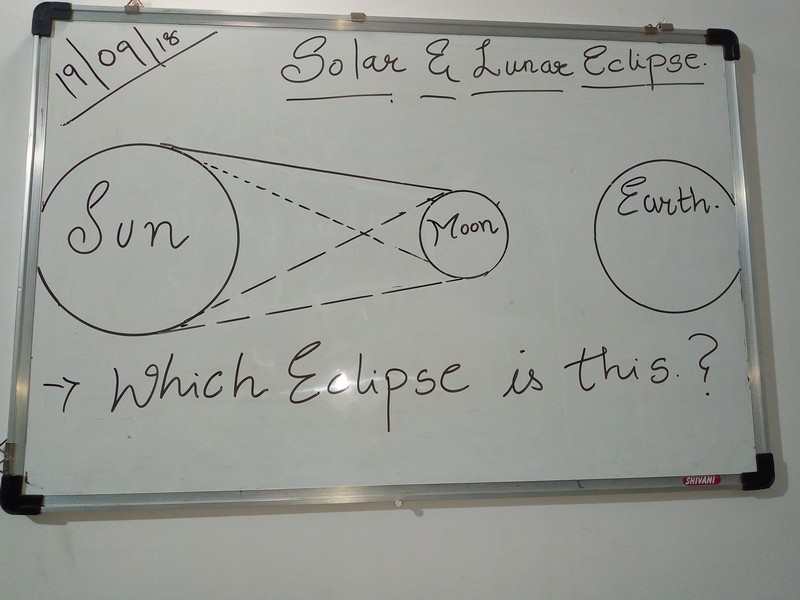 19/09/18
Solar & Lunar Eclipse.
Sun
Moon
Earth.
→ Which Eclipse is this.?
SHIVANI